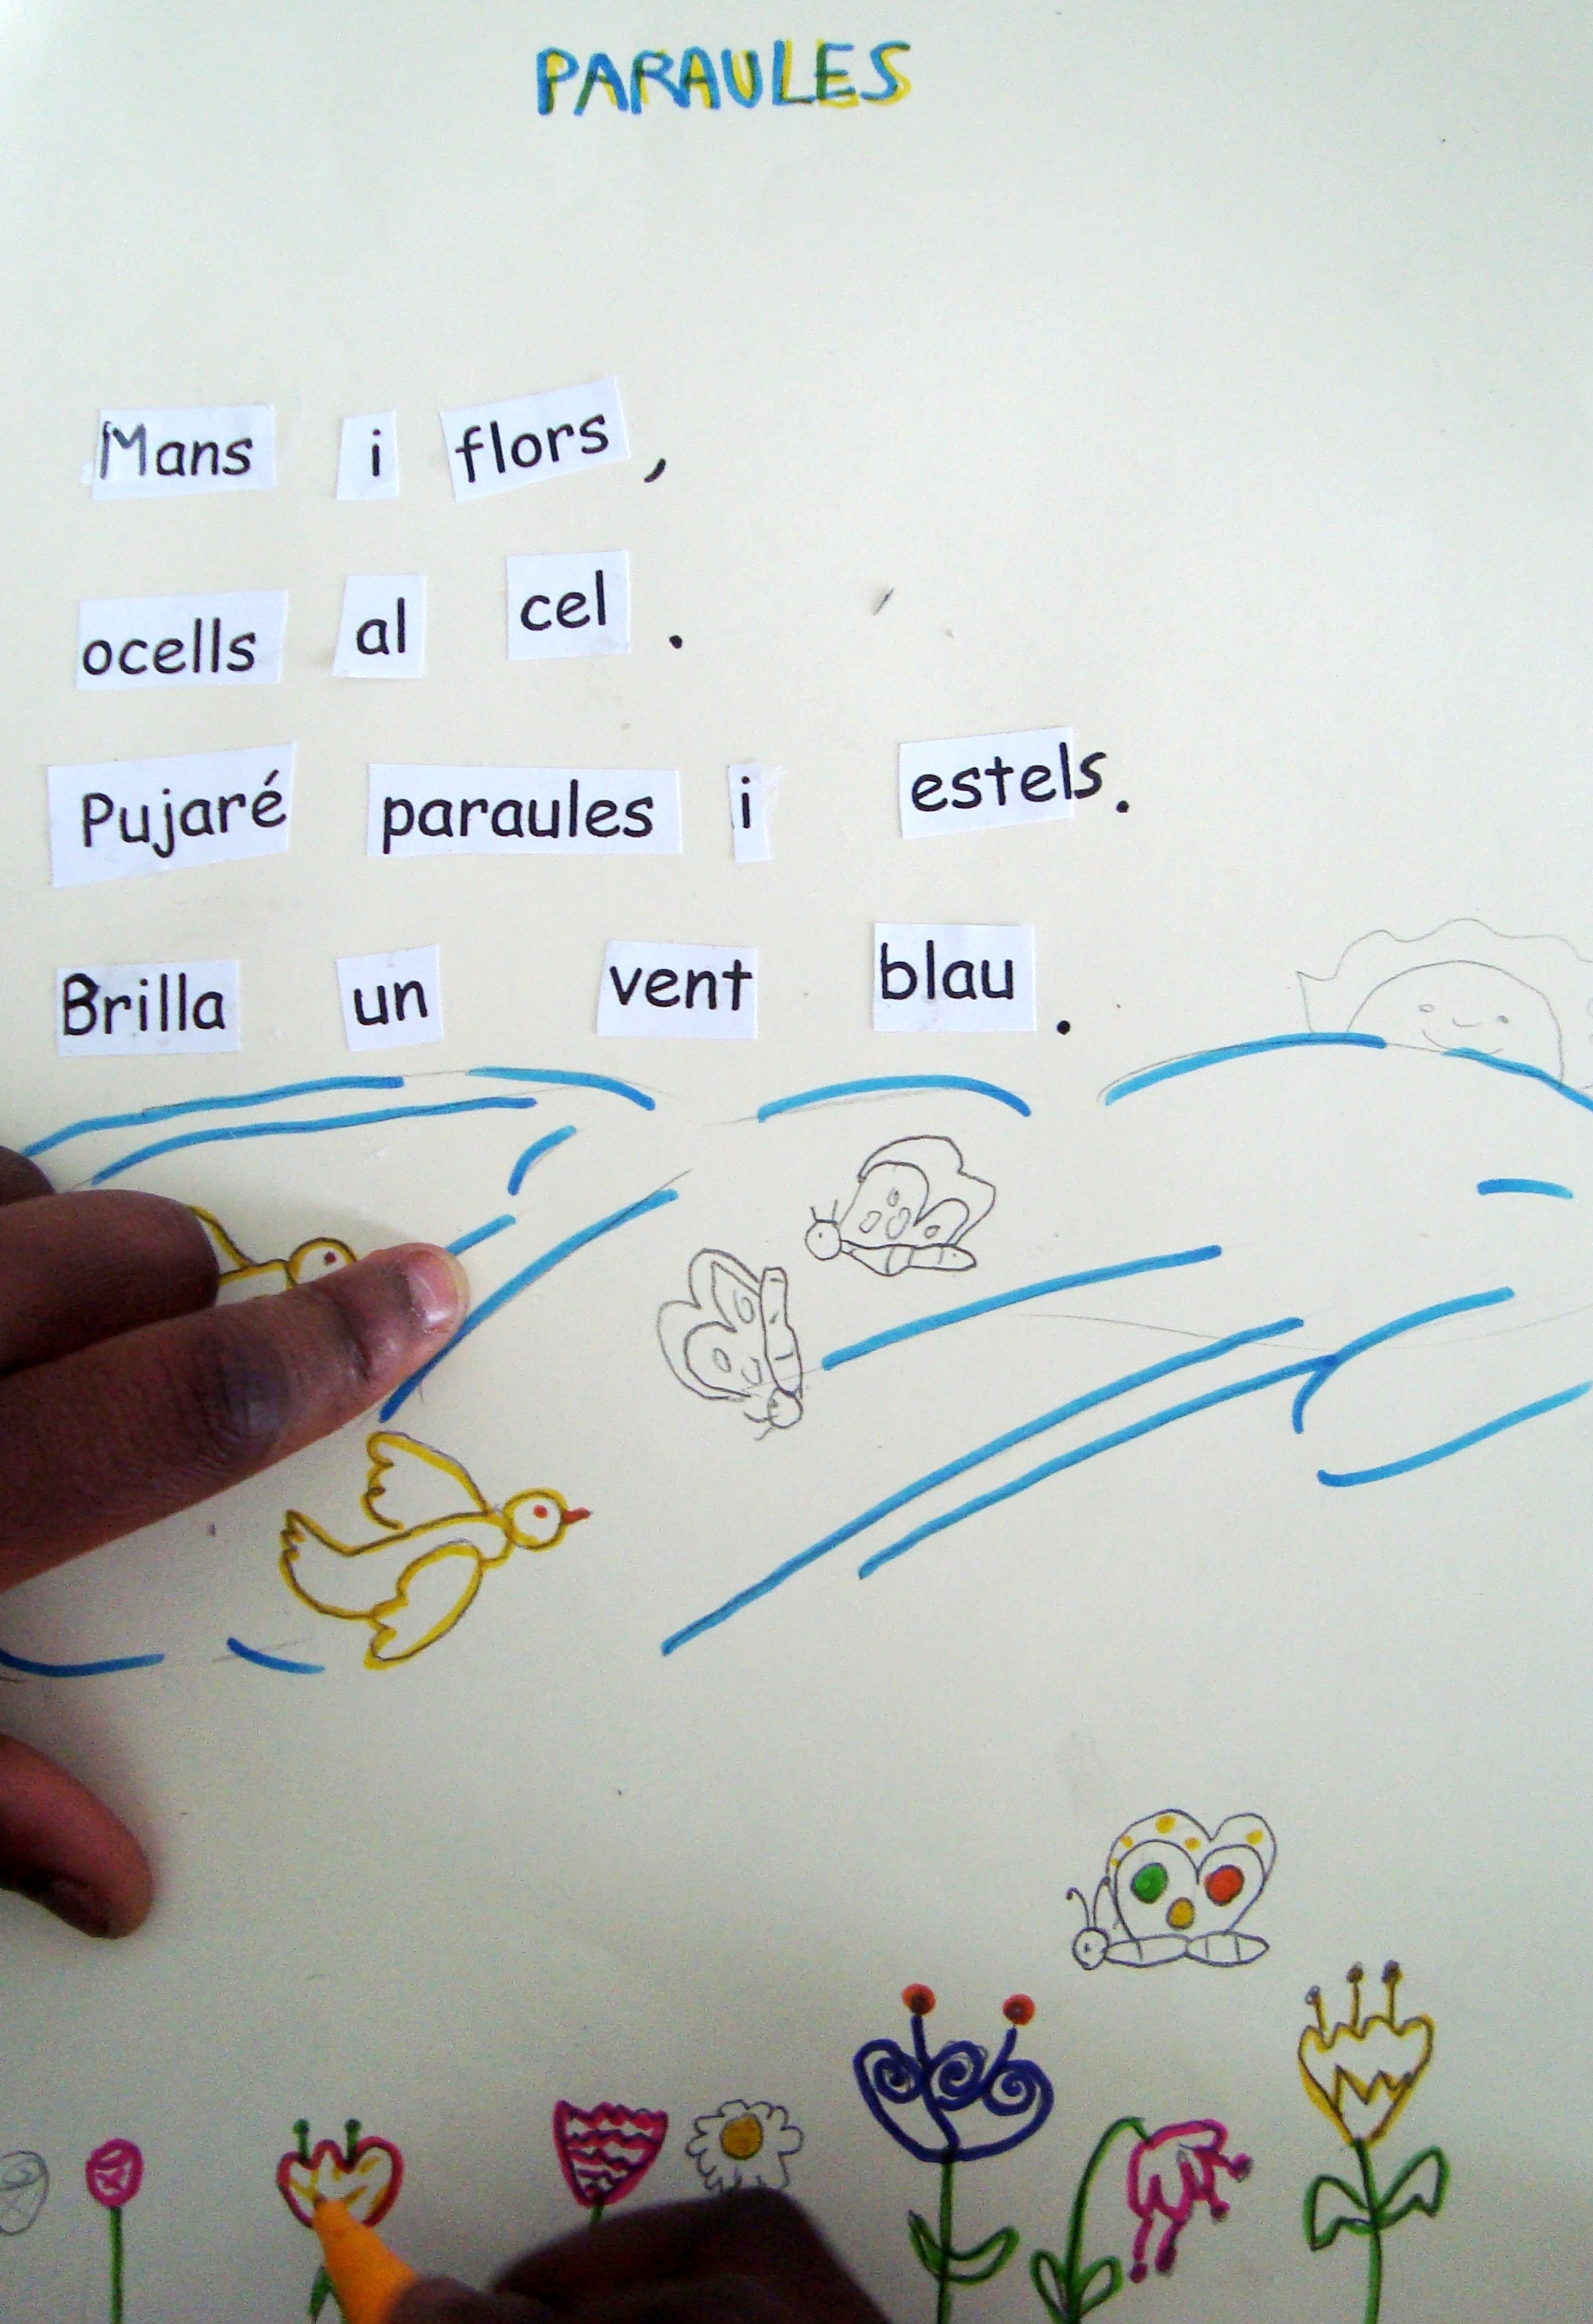 PARAULES
Mans i flors,
ocells al cel.
Pujaré paraules i estels.
Brilla un vent blau.